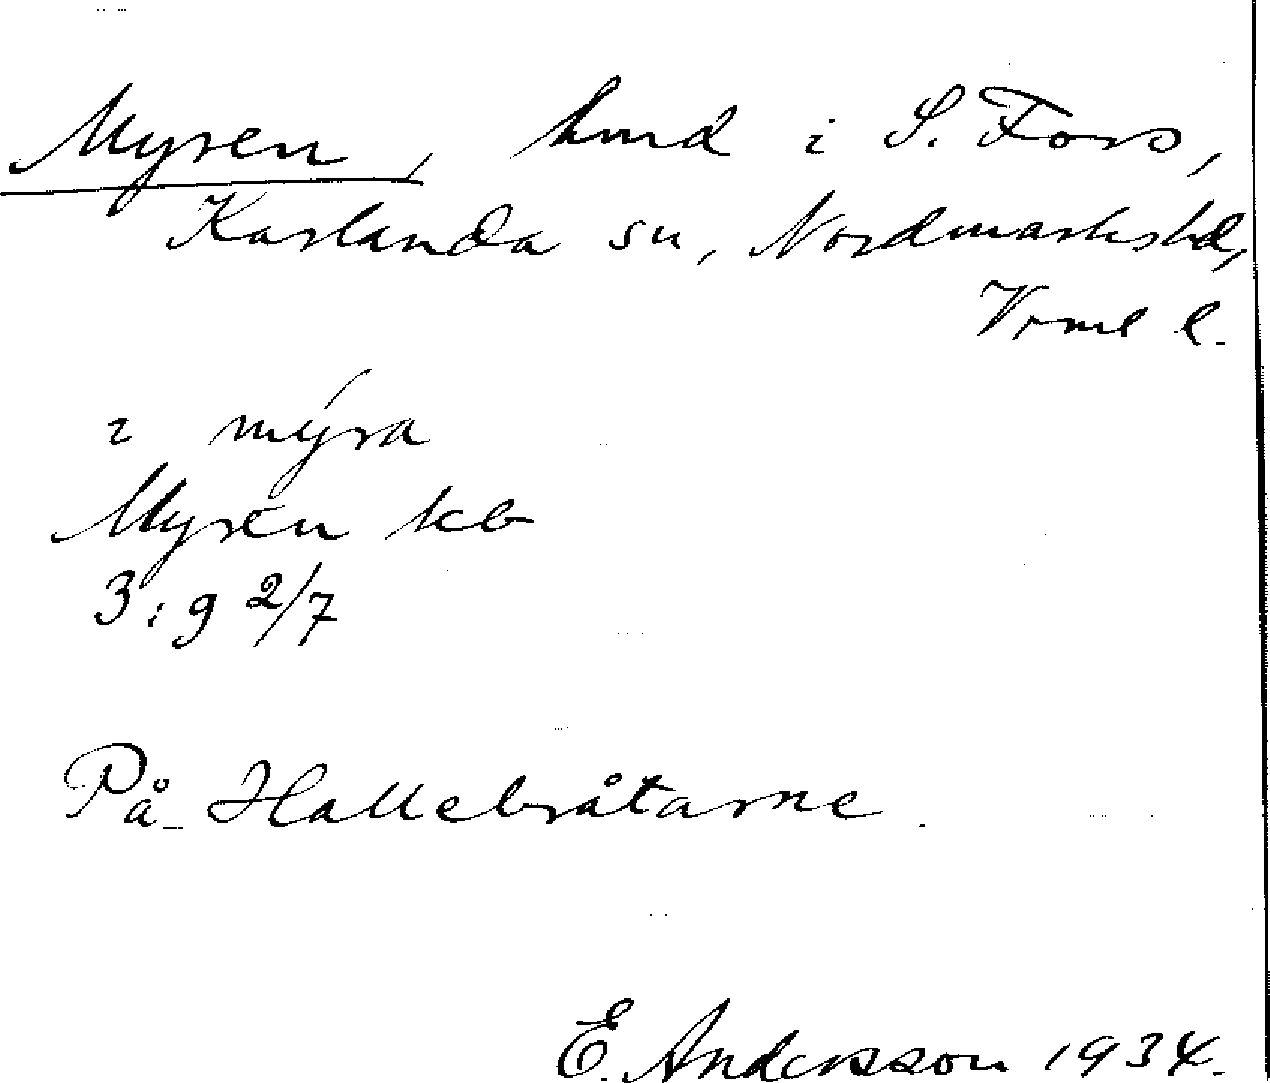 Myren, lmd i S. Fors,
Karlanda sn, Nordmarkshd,
Vrml l.
i mýra
Myren kb
3:9 2/7
På Hallebråtarne.
E. Andersson 1934.